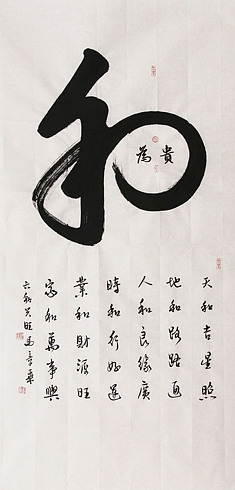 和
為貴
天和吉星照
地和路路通
人和良緣廣
時和行好運
業和財源旺
家和萬事興
六和兴旺